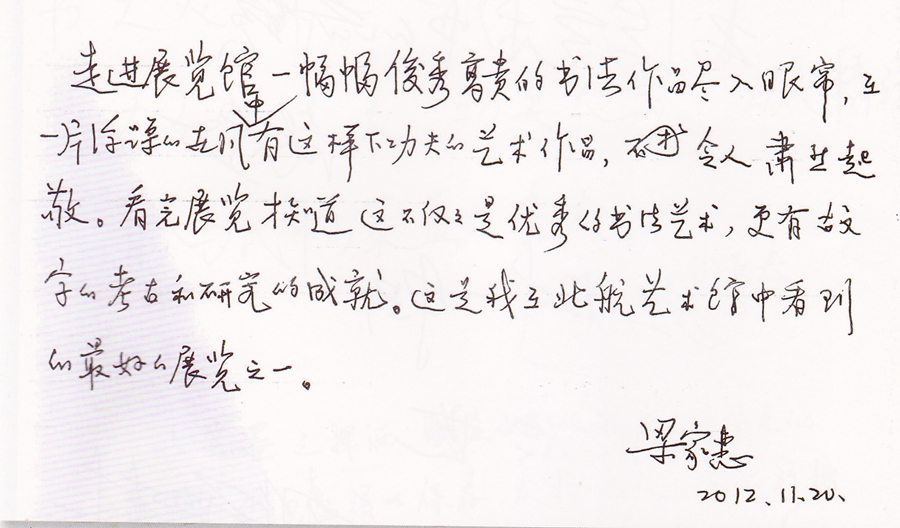 走进展览馆一幅幅俊秀高贵的书法作品尽入眼帘，在
一片浮躁的年代中有这样下功夫的艺术作品，不禁令人肃然起
敬。看完展览才知道这不仅仅是优秀的书法艺术，更有古文
字的考古和研究的成就。这是我在北航艺术馆中看到
的最好的展览之一。
梁家
2012.11.20.